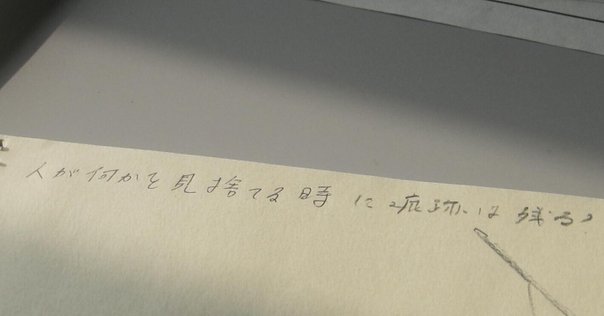 人が何かを見捨てる時に痕跡は残る?